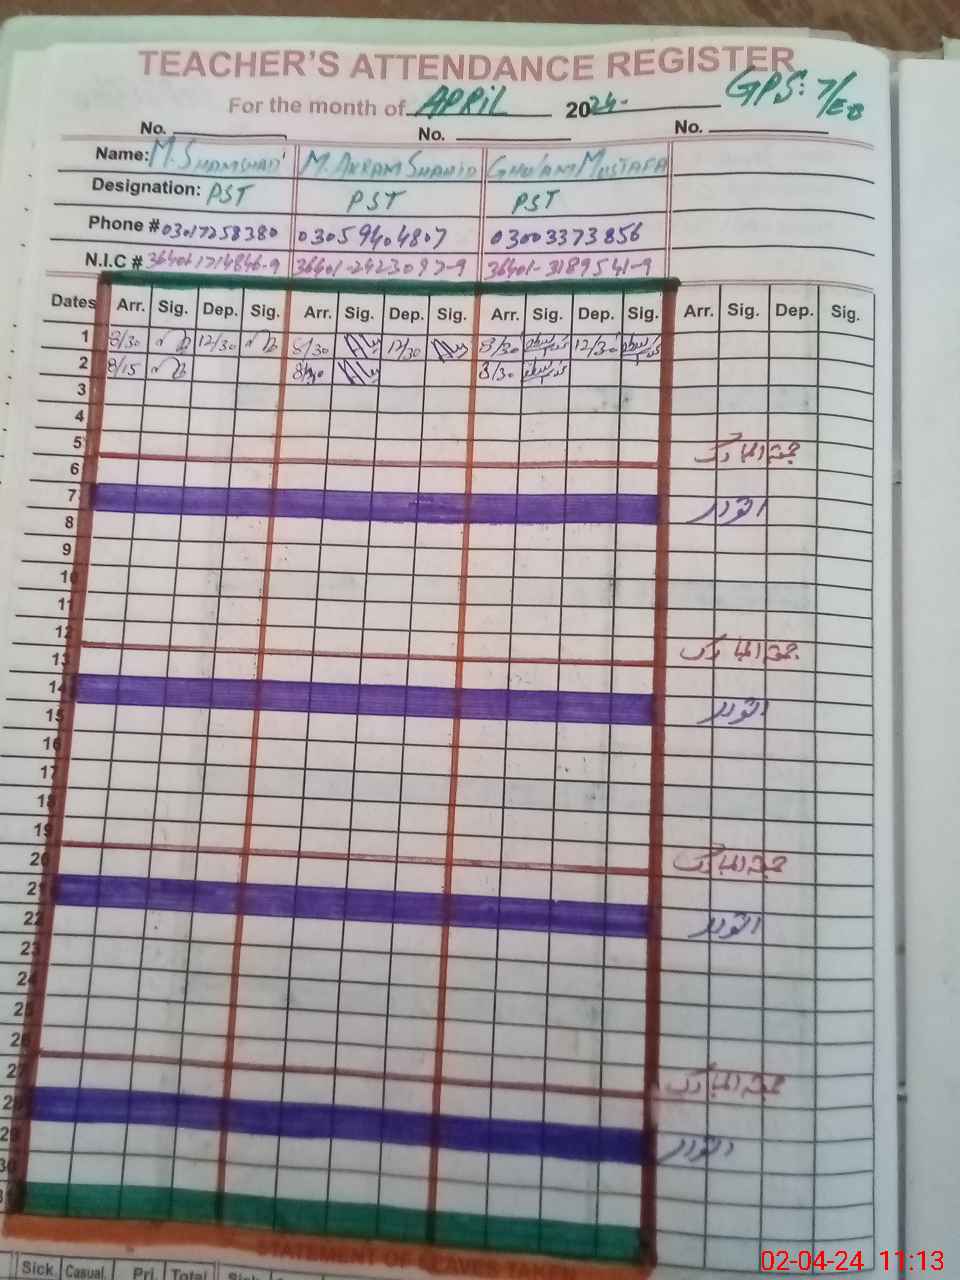 TEACHER'S ATTENDANCE REGISTER
GPS: 7/EB
For the month of APRIL 2024-
No. No. No.
Name: M. SHAMSHAD M. AKRAM SHAHID GHULAM MUSTAFA
Designation: PST PST PST
Phone # 03017258380 03059404807 03003373856
N.I.C # 36401-2423097-9 36401-3189541-9
Dates Arr. Sig. Dep. Sig. Arr. Sig. Dep. Sig. Arr. Sig. Dep. Sig. Arr. Sig. Dep. Sig.
1 8/30 12/30 8/30 12/30 8/30 12/30
2 8/15 8/30
3
4
5
جمعۃ المبارک
6
7
اتوار
8
9
10
11
12
جمعۃ المبارک
13
14
اتوار
15
16
17
18
19
20 جمعۃ المبارک
21
22 اتوار
23
24
25
26
27 جمعۃ المبارک
28
29 اتوار
30
STATEMENT OF LEAVES
Sick. Casual. Pri. Total Sick.
02-04-24 11:13